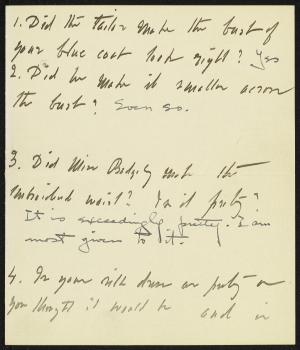 1. Did the tailor make the bust of
your blue coat look right? Yes
2. Did he make it smaller across
the bust? Even so.
3. Did Miss Badgely make the
embroidered waist? Is it pretty?
It is exceedingly pretty. I am
most given to it.
4. Is your silk dress as pretty as
you thought it would be and is